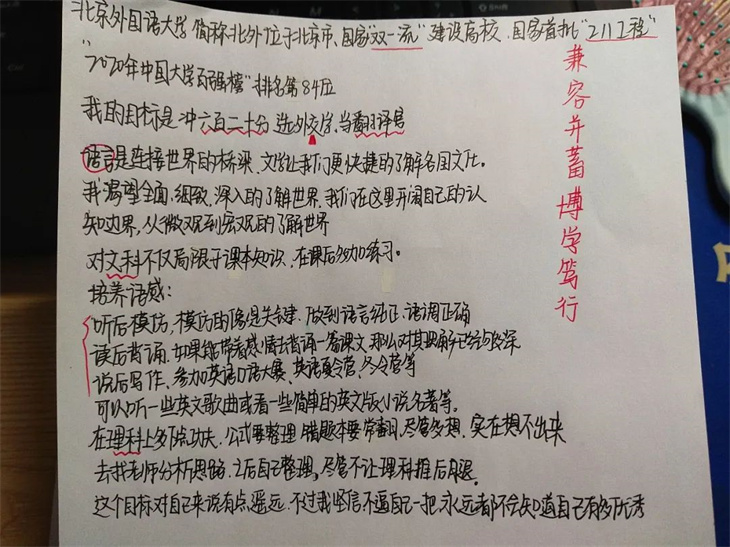 北京外国语大学 简称北外位于北京市、国家"双一流"建设高校、国家首批"211工程"
"2020年中国大学百强榜"排名第84位
我的目标是冲六百二十分 选外交学、当翻译号
语言是连接世界的桥梁、文学让我们更快捷的了解各国文化。
我渴望全面、细致、深入的了解世界、我们在这里开阔自己的认
知边界,从微观到宏观的了解世界
对文科不仅局限于课本知识、在课后多加练习。
培养语感:
听后模仿,模仿的 是关键、做到语言纯正、语调正确
读后背诵、如果能带着感情去背诵一篇课文、那么对其理解
说后写作、参加英语口语大赛、英语夏令营、冬令营等
可以听一些英文歌曲或看一些简单的英文版小说名著等。
在理科上多下点功夫、公式要整理 错题本要常翻、尽管多想、实在想不出来
去找老师分析思路、之后自己整理,尽管不让理科推后退。
这个目标对自己来说有点遥远、不过我坚信不逼自己一把、永远都不会知道自己有多优秀
兼容并蓄博学笃行